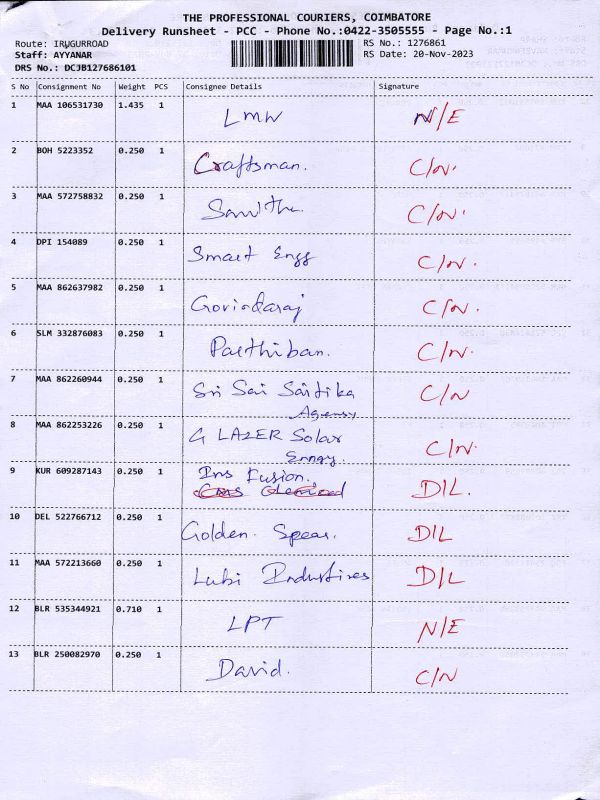 THE PROFESSIONAL COURIERS, COIMBATORE
Delivery Runsheet - PCC - Phone No.:0422-3505555 - Page No.:1
Route: IRUGURROAD RS No.: 1276861
Staff: AYYANAR RS Date: 20-Nov-2023
DRS No.: DCJB127686101
S No Consignment No Weight PCS Consignee Details Signature
1 MAA 106531730 1.435 1 LMW N/E
2 BOH 5223352 0.250 1 Craftsman. C/N.
3 MAA 572758832 0.250 1 C/N.
4 DPI 154089 0.250 1 Smart Engg C/N.
5 MAA 862637982 0.250 1 Govindaraj C/N.
6 SLM 332876083 0.250 1 Parthiban. C/N.
7 MAA 862260944 0.250 1 Sri Sai Saitika C/N
Agensy
8 MAA 862253226 0.250 1 G LAZER Solar C/N.
Enngy.
9 KUR 609287143 0.250 1 Ins Fusion. D/L.
10 DEL 522766712 0.250 1 Golden. Spear. D/L
11 MAA 572213660 0.250 1 Lubi Industires D/L
12 BLR 535344921 0.710 1 LPT N/E
13 BLR 250082970 0.250 1 David. C/N